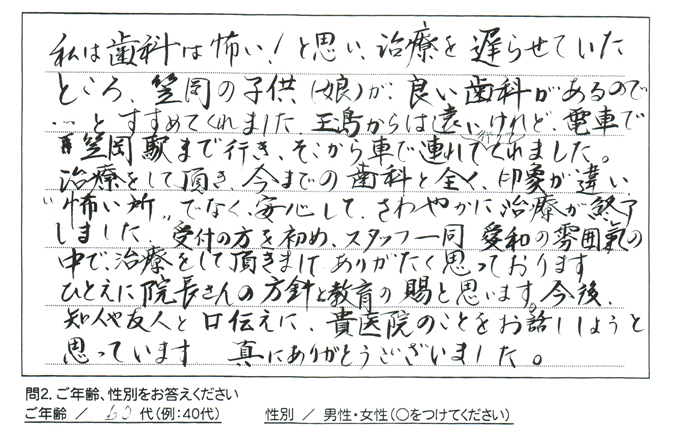 私は歯科は怖い！と思い、治療を遅らせていた
ところ、笠岡の子供、(娘)が、良い歯科があるので
…とすすめてくれました。玉島からは遠いけれど、電車で
笠岡駅まで行き、そこから車で連れて行ってくれました。
治療をして頂き、今までの歯科と全く、印象が違い、
"怖い所"でなく、安心して、さわやかに治療が終了
しました 受付の方を初め、スタッフ一同 愛和の雰囲気の
中で、治療をして頂きまして、ありがたく思っております
ひとえに院長さんの方針と教育の賜と思います。今後、
知人や友人と口伝えに、貴医院のことをお話ししようと
思っています 真にありがとうございました。
問2. ご年齢、性別をお答えください
ご年齢 / 60 代(例:40代) 性別 / 男性・女性(○をつけてください)